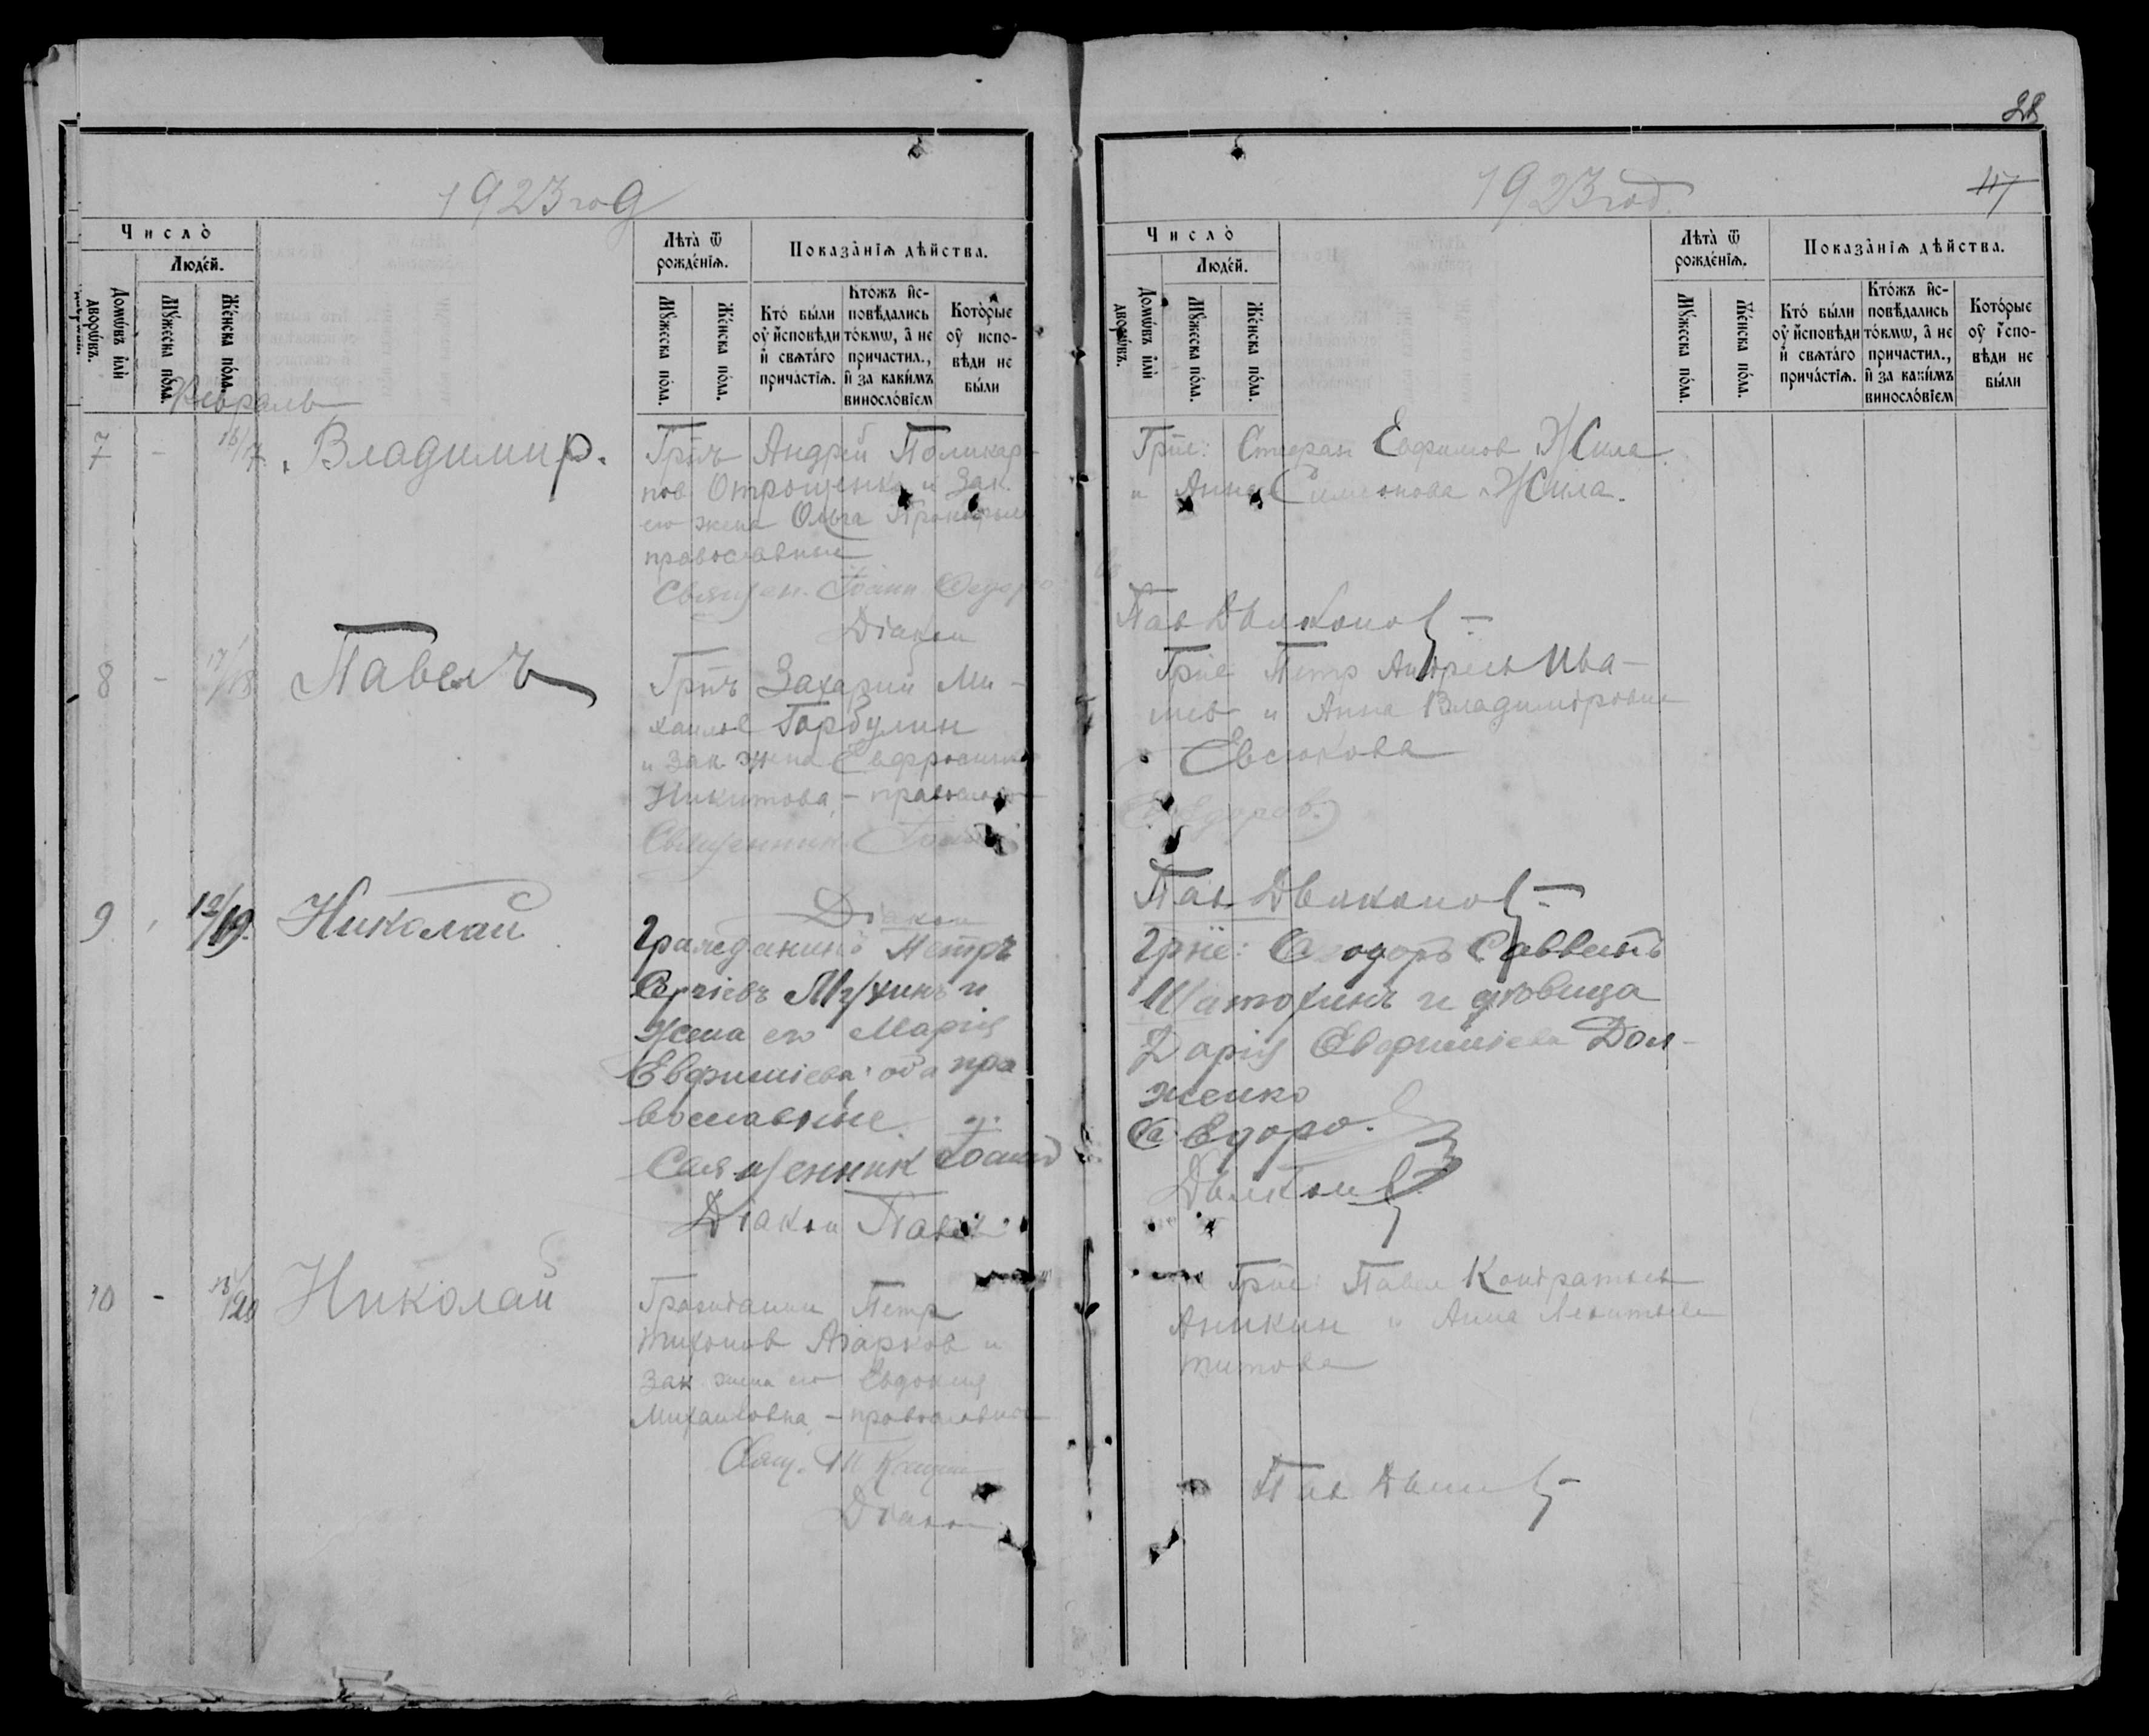 28
1923 год
Число̀
Люде́й.
Домѡ́въ и҆лѝ дворѡ́въ.
Мꙋ́жеска по́ла.
Же́нска по́ла.
Лѣта̀ ѿ рожде́нїѧ.
Мꙋ́жеска по́ла.
Же́нска по́ла.
Показа̑нїѧ дѣ́йства.
Кто̀ бы́ли оу҆ и҆сповѣди и҆ свѧта́гѡ прича́стїѧ.
Кто́жъ и҆сповѣдались то́кмѡ, а҆ не причастил., и҆ за каки́мъ винослові́ем
Кото́рые оу҆ исповѣди не бы́ли
Февраль
7 - 16/17 Владимир.
Грнъ Андрей Поликар-
пов Отрощенко и Зак.
его жена Ольга
православные
Священ. Іоанн Федоро
Діакон
8 - 17/18 Павелъ
Грнъ Захарий Ми-
хаилов Горбулин
и Зак. жена Евфросиния
Никитова, - православн
Священник Іоанн
Діакон
9 12/19. Николай
Гражданинъ Петръ
Сергіевъ Мухинъ и
жена его Марія
Евфиміева оба пра
вославные.
Священник Іоаннъ
Діакон Павел
10 - 20 Николай
Гражданин Петр
Тихонов Азарков и
Зак жена его Евдокия
Михаиловна, - православные
Свящ.
Діакон
1923 год.
47
Число̀
Люде́й.
Домѡ́въ и҆лѝ дворѡ́въ.
Мꙋ́жеска по́ла.
Же́нска по́ла.
Лѣта̀ ѿ рожде́нїѧ.
Мꙋ́жеска по́ла.
Же́нска по́ла.
Показа̑нїѧ дѣ́йства.
Кто̀ бы́ли оу҆ и҆сповѣди и҆ свѧта́гѡ прича́стїѧ.
Кто́жъ и҆сповѣдались то́кмѡ, а҆ не причастил., и҆ за каки́мъ винослові́ем
Кото́рые оу҆ і҆сповѣди не бы́ли
Грне: Стефан Евфимов Жила.
и Анна Симеонова Жила.
Пав Дьяконов -
Грне Петр Андреев Ива-
нов и Анна Владимировна
Евсюкова
Федоров.
Пав. Дьяконов -
Грне: Ѳеодоръ Саввинъ
Шатохинъ и дѣвица
Дарія Евфиміева Дол-
женко
Ѳедоро.
Дьяконов
Грне: Павел Кондратьев
Аникин и Анна Леонтьева
Титова
Пав